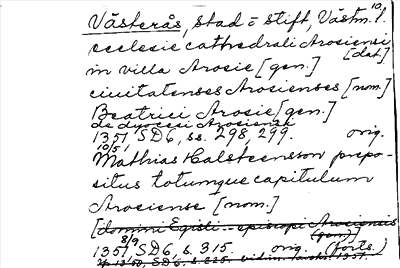 10/.
Västerås, stad o stift, Västm. l.
ecclesie cathedrali Arosiensi [dat.]
in villa Arosie [gen.]
ciuitatenses Arosienses [nom.]
Beatrici Arosie [gen.]
de dyocesi Arosiensi
1351 SD6, ss. 298, 299. orig.
10/5
Mathias Halsteensson prepo-
situs totumque capitulum
Arosiense [nom.]
[domini Egisli - episcopi Arociensis (gen.)]
8/9
1351, SD6, s. 315. orig. (forts.)